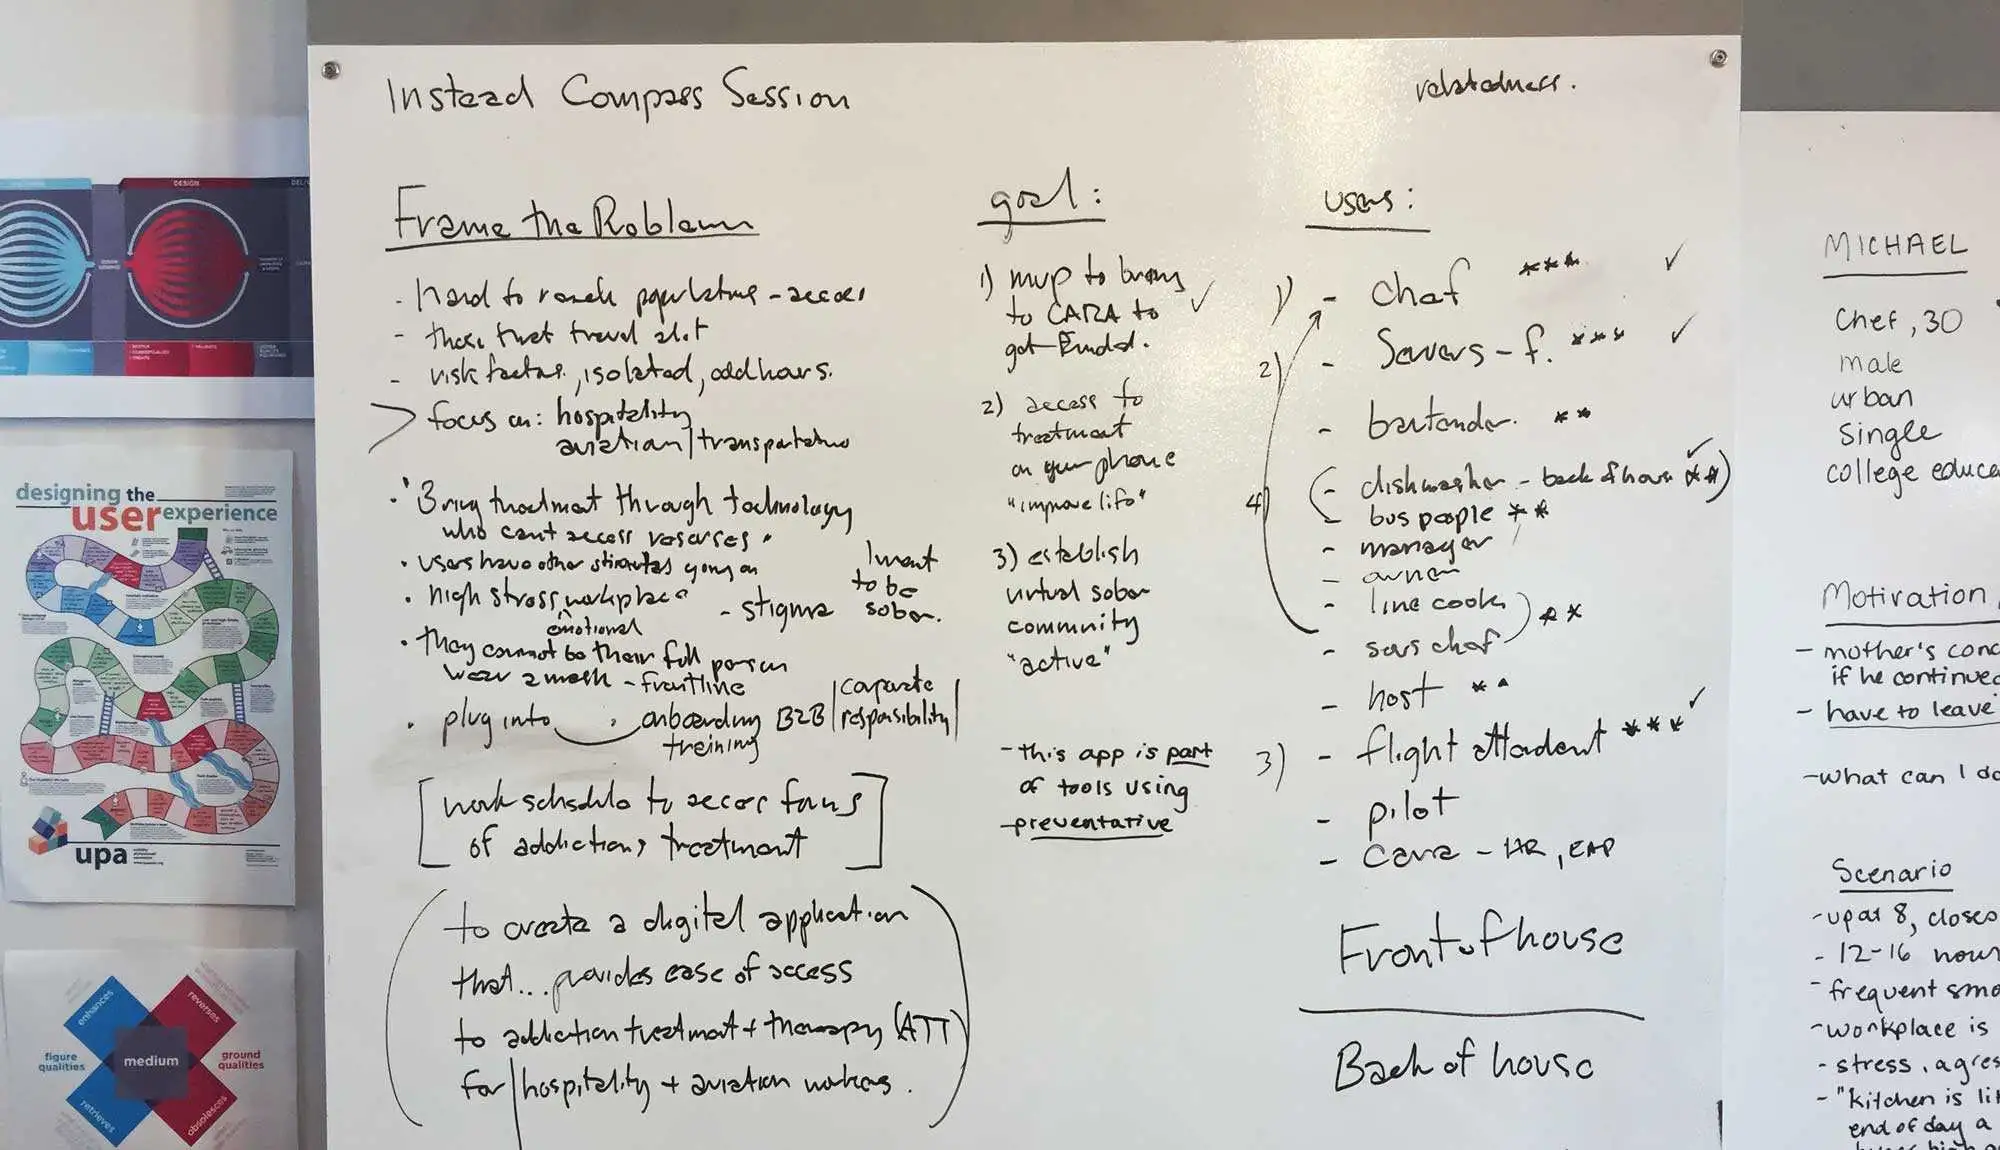 Instead Compass Session
relatedness.
Frame the Problem
- hard to reach populations - access
- those that travel alot
- risk factors, isolated, odd hours.
> focus on: hospitality
aviation/transportation
• "Bring treatment through technology
who can't access resources"
• users have other going on
• high stress workplace
emotional
- stigma
I want
to be
sober.
• they cannot be their full person
wear a mask - frontline
• plug into
• onboarding B2B
training
corporate
responsibility
[work schedule to access forms
of addictions treatment]
(to create a digital application
that... provides ease of access
to addiction treatment + therapy (ATT)
for hospitality + aviation workers.)
goal:
1) mvp to bring ✓
to CARA to
get Fund.
2) access to
treatment
on your phone
"improve life"
3) establish
virtual sober
community
"active"
- this app is part
of tools using
- preventative
users:
1) - chef *** ✓
2) - Servers - f. *** ✓
- bartender. **
4) (- dishwasher - back of house **) ✓
- bus people **
- manager
- owner
- line cook
- sous chef) **
- host **
3) - flight attendent *** ✓
- pilot
- Cara - HR, EAP
Front of house
Back of house
MICHAEL
Chef, 30
male
urban
Single
college educa
Motivation
- mother's conc
if he continued
- have to leave
- what can I do
Scenario
- up at 8, closes
- 12-16 hour
- frequent smo
- workplace is
- stress, agres
- "kitchen is lit
end of day a
DESIGN
designing the
user experience
upa
enhances
reverses
figure
qualities
medium
ground
qualities
retrieves
obsolesces